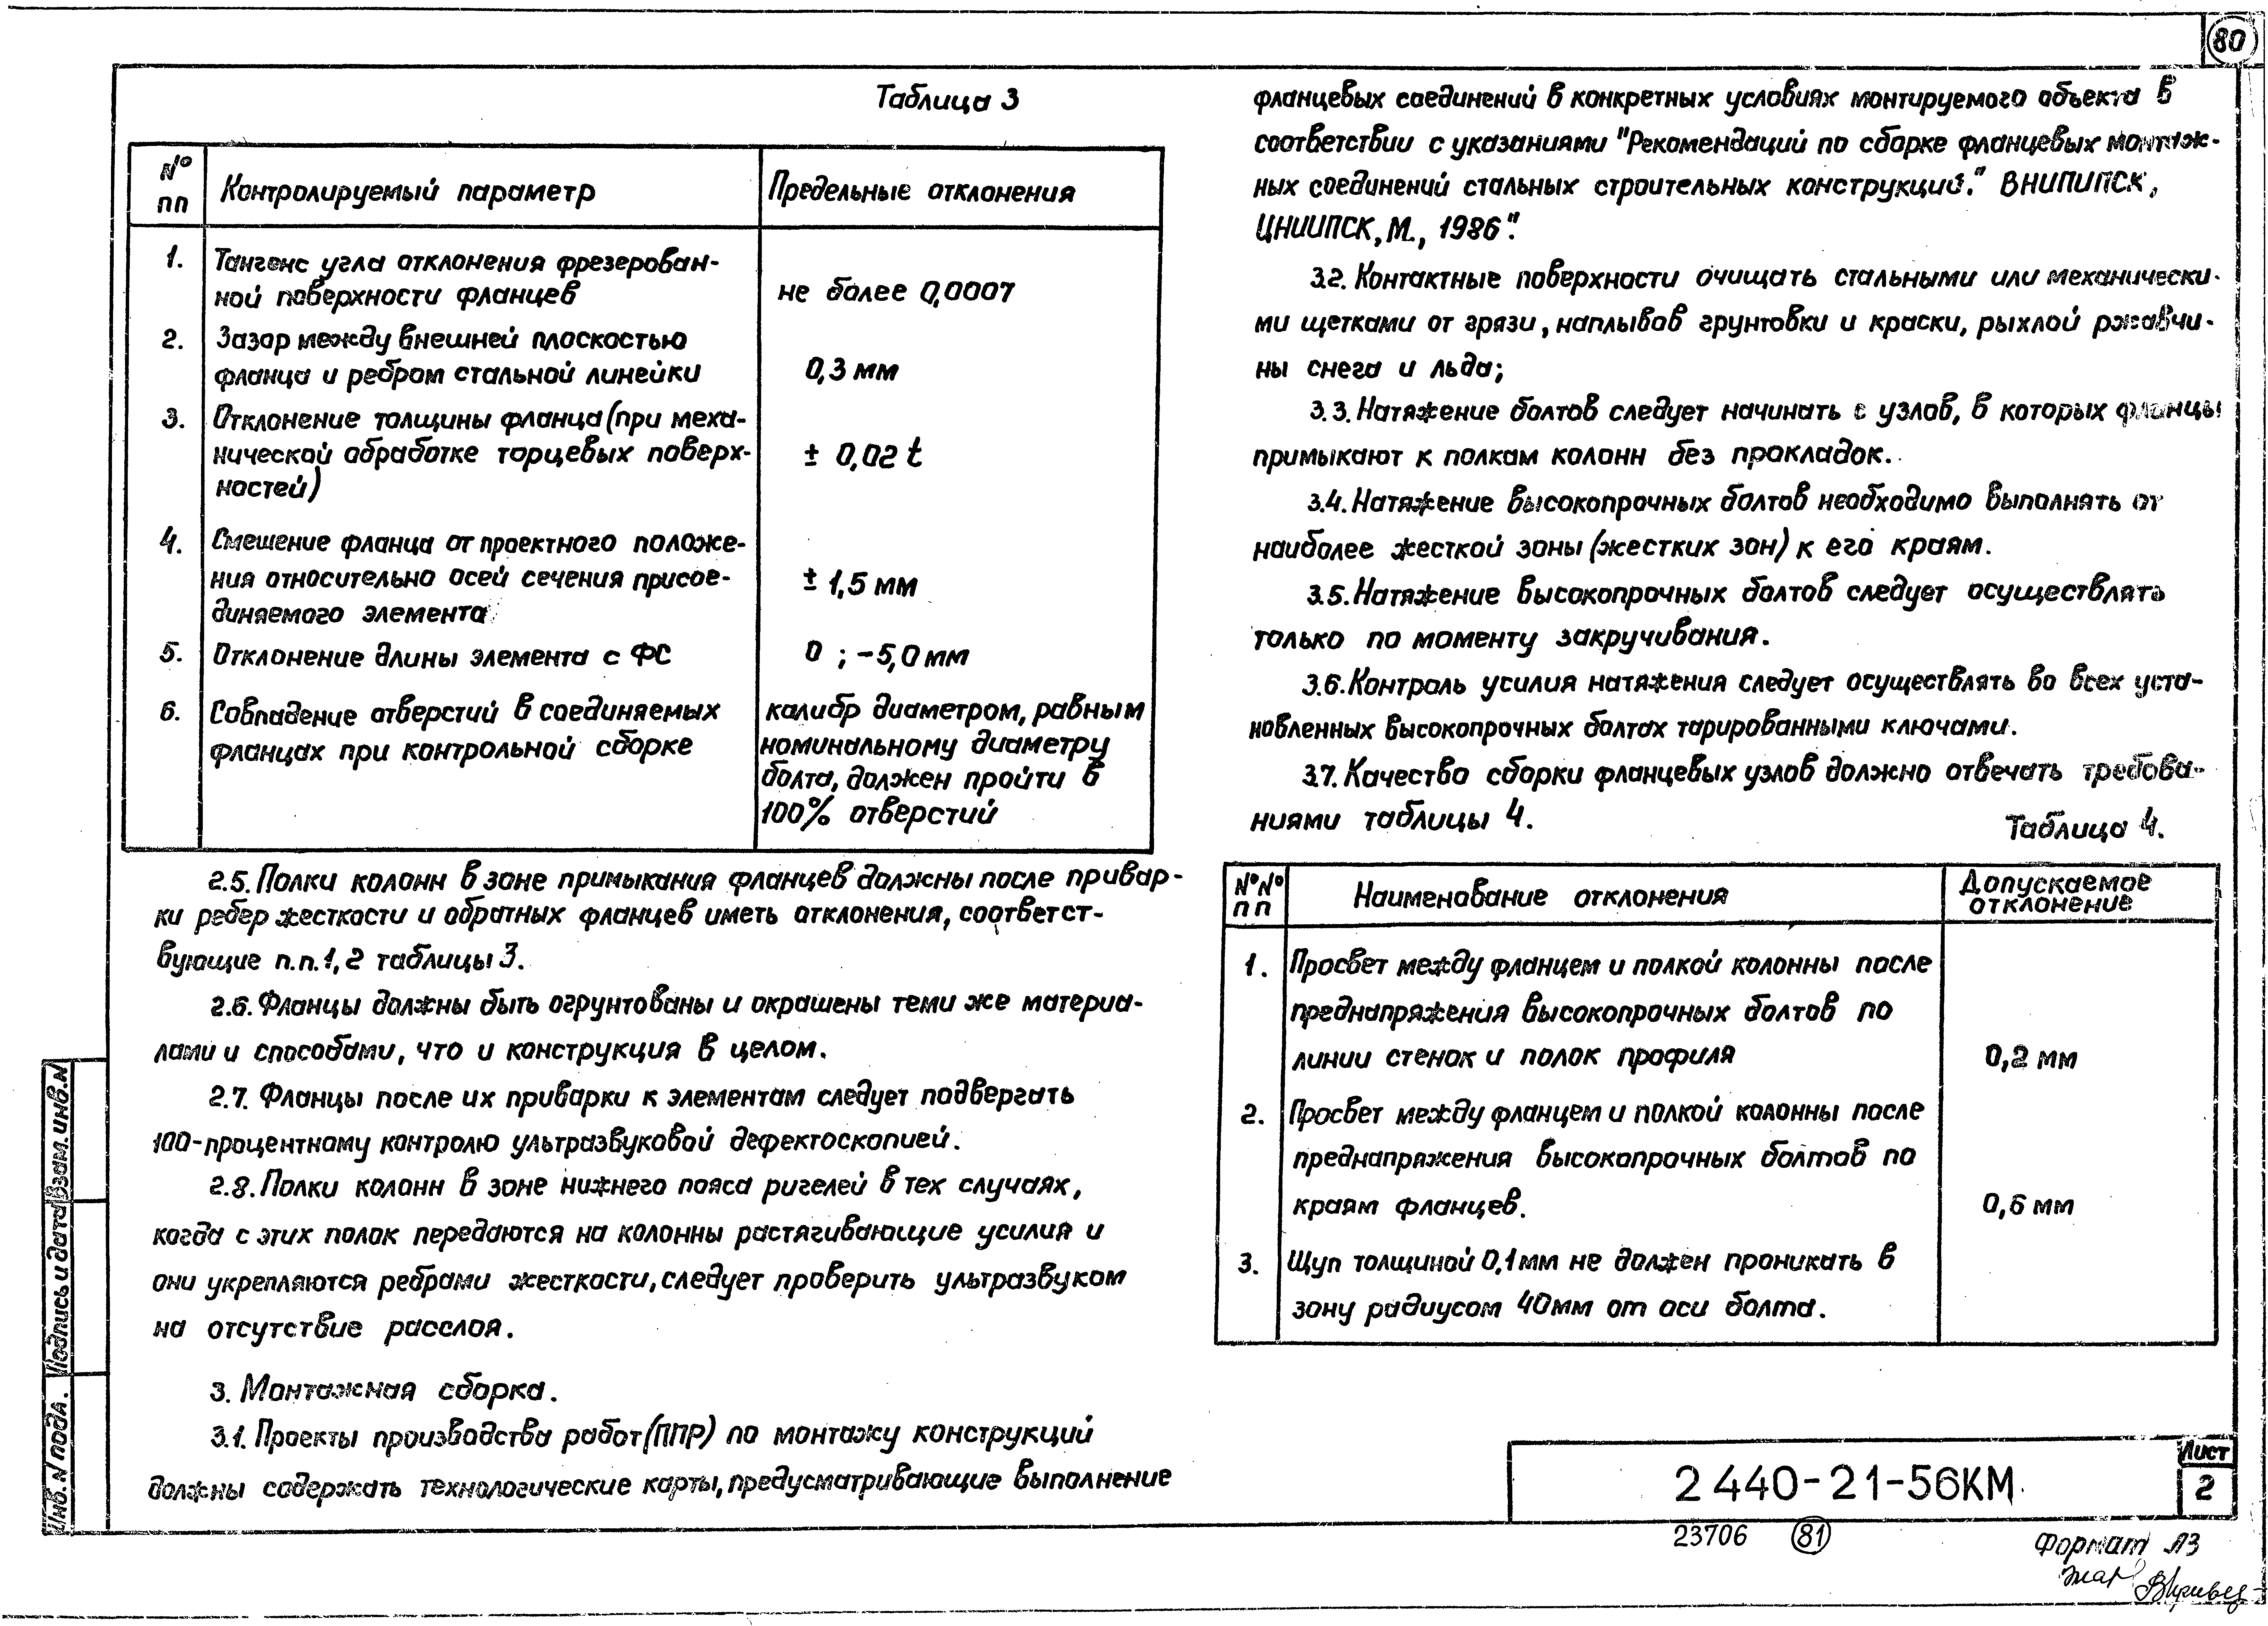 80
Таблица 3
№ пп
Контролируемый параметр
Предельные отклонения
1.
Тангенс угла отклонения фрезерован-
ной поверхности фланцев
не более 0,0007
2.
Зазор между внешней плоскостью
фланца и ребром стальной линейки
0,3 мм
3.
Отклонение толщины фланца (при меха-
нической обработке торцевых поверх-
ностей)
± 0,02 t
4.
Смещение фланца от проектного положе-
ния относительно осей сечения присое-
диняемого элемента
± 1,5 мм
5.
Отклонение длины элемента с ФС
0 ; -5,0 мм
6.
Совпадение отверстий в соединяемых
фланцах при контрольной сборке
калибр диаметром, равным
номинальному диаметру
болта, должен пройти в
100% отверстий
2.5. Полки колонн в зоне примыкания фланцев должны после привар-
ки ребер жесткости и обратных фланцев иметь отклонения, соответст-
вующие п.п. 1, 2 таблицы 3.
2.6. Фланцы должны быть огрунтованы и окрашены теми же материа-
лами и способами, что и конструкция в целом.
2.7. Фланцы после их приварки к элементам следует подвергать
100-процентному контролю ультразвуковой дефектоскопией.
2.8. Полки колонн в зоне нижнего пояса ригелей в тех случаях,
когда с этих полок передаются на колонны растягивающие усилия и
они укрепляются ребрами жесткости, следует проверить ультразвуком
на отсутствие расслоя.
3. Монтажная сборка.
3.1. Проекты производства работ (ППР) по монтажу конструкций
должны содержать технологические карты, предусматривающие выполнение
фланцевых соединений в конкретных условиях монтируемого объекта в
соответствии с указаниями "Рекомендаций по сборке фланцевых монтаж-
ных соединений стальных строительных конструкций." ВНИПИПСК,
ЦНИИПСК, М., 1986".
3.2. Контактные поверхности очищать стальными или механически-
ми щетками от грязи, наплывов грунтовки и краски, рыхлой ржавчи-
ны снега и льда;
3.3. Натяжение болтов следует начинать с узлов, в которых фланцы
примыкают к полкам колонн без прокладок.
3.4. Натяжение высокопрочных болтов необходимо выполнять от
наиболее жесткой зоны (жестких зон) к его краям.
3.5. Натяжение высокопрочных болтов следует осуществлять
только по моменту закручивания.
3.6. Контроль усилия натяжения следует осуществлять во всех уста-
новленных высокопрочных болтах тарированными ключами.
3.7. Качество сборки фланцевых узлов должно отвечать требова-
ниями таблицы 4.
Таблица 4.
№№ пп
Наименование отклонения
Допускаемое
отклонение
1.
Просвет между фланцем и полкой колонны после
преднапряжения высокопрочных болтов по
линии стенок и полок профиля
0,2 мм
2.
Просвет между фланцем и полкой колонны после
преднапряжения высокопрочных болтов по
краям фланцев.
0,6 мм
3.
Щуп толщиной 0,1мм не должен проникать в
зону радиусом 40мм от оси болта.
Инв. N подл.
Подпись и дата
Взам. инв. N
2 440-21-56КМ
Лист
2
23706
81
Формат А3